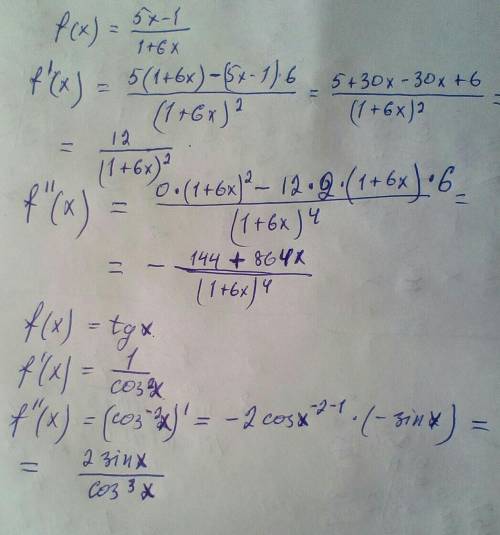 f(x) = (5x-1)/(1+6x)
f'(x) = (5(1+6x)-(5x-1)·6)/(1+6x)² = (5+30x-30x+6)/(1+6x)² =
= 12/(1+6x)²
f''(x) = (0·(1+6x)² - 12·2·(1+6x)·6)/(1+6x)⁴ =
= - (144+864x)/(1+6x)⁴
f(x) = tgx
f'(x) = 1/cos²x
f''(x) = (cos⁻²x)' = -2cosx⁻²⁻¹·(-sinx) =
= 2sinx/cos³x